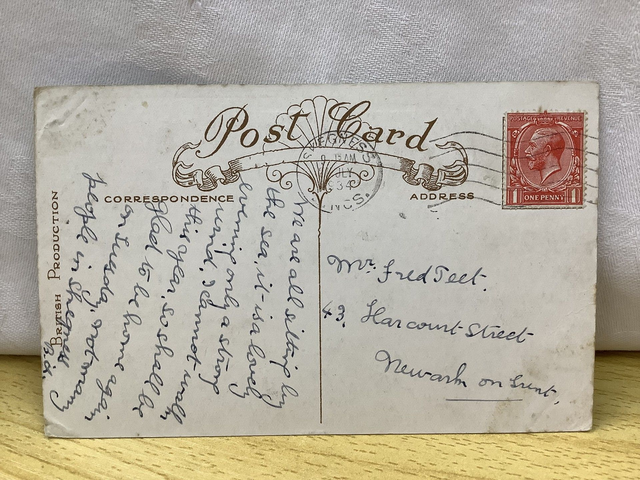 Post Card
CORRESPONDENCE
ADDRESS
BRITISH PRODUCTION
POSTAGE REVENUE
1 ONE PENNY 1
SKEGNESS
LINCS.
We are all sitting by
the sea, it is a lovely
evening only a strong
wind, I cannot walk
this year, so shall be
glad to be home again
on Tuesday, not many
people in Skegness
Mr. Fred Teet.
43. Harcourt Street
Newark on Trent,